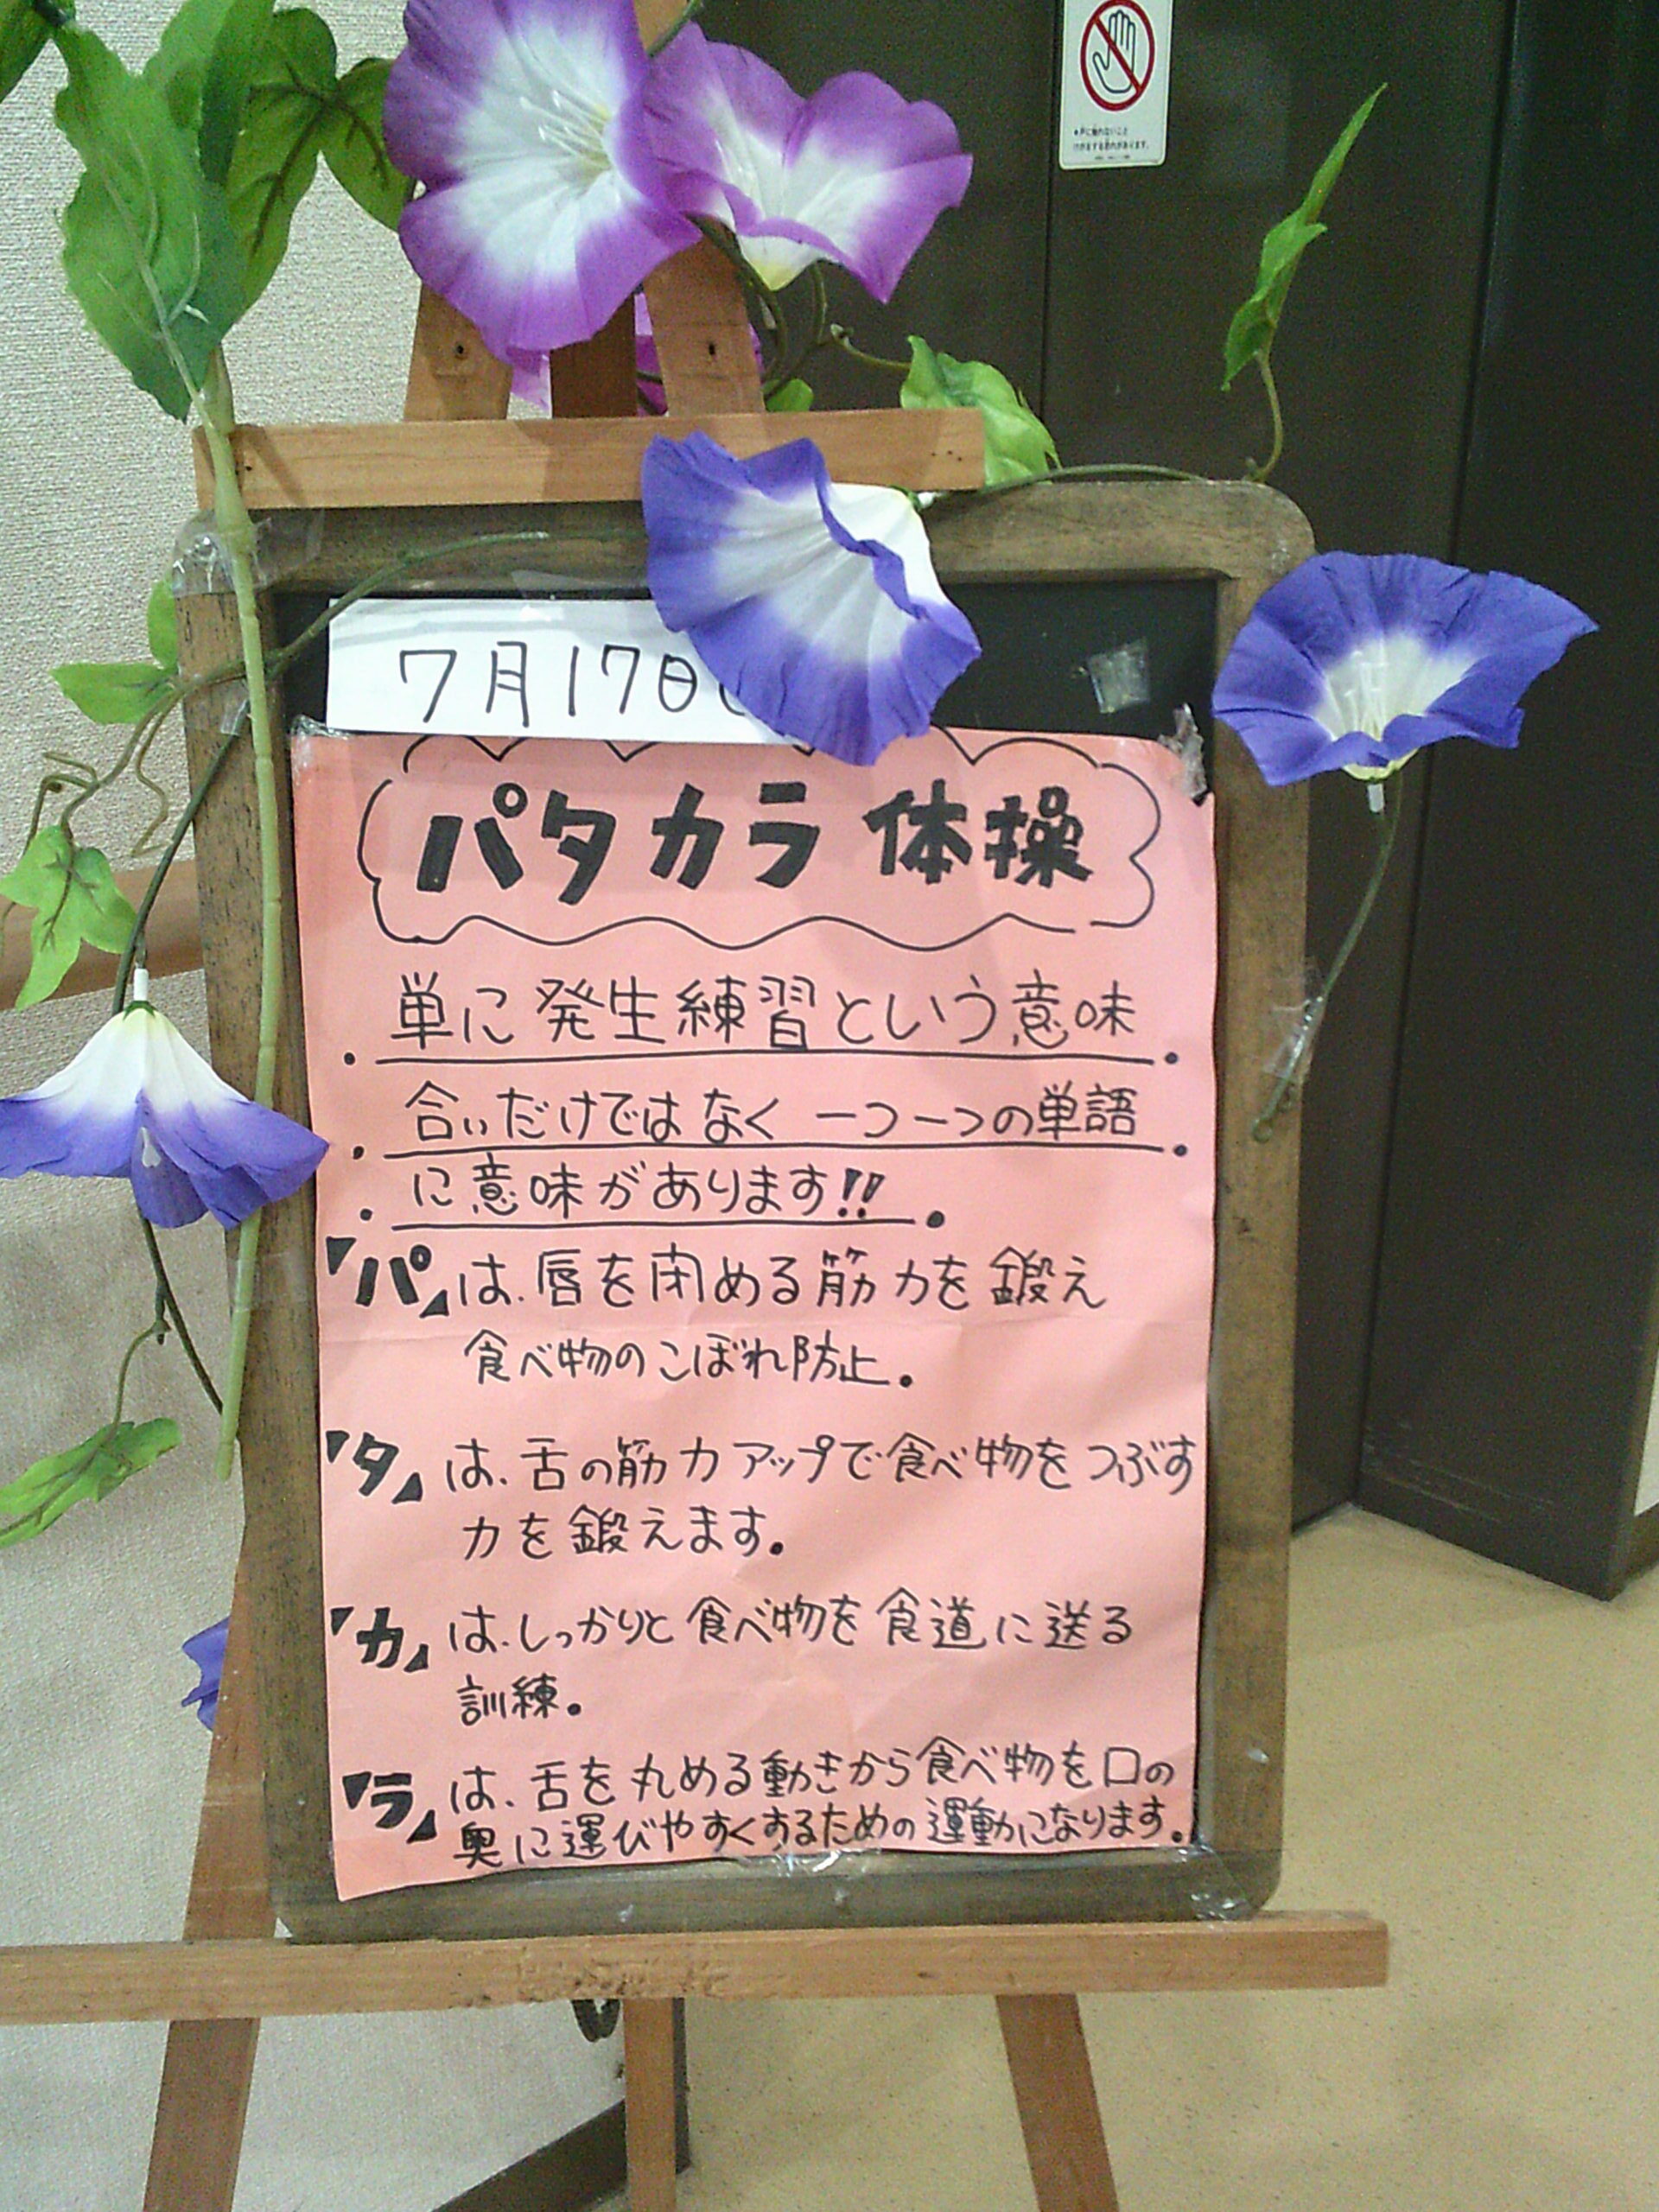 7月17日(
パタカラ体操
単に発生練習という意味
合いだけではなく一つ一つの単語
に意味があります!!
「パ」は、唇を閉める筋力を鍛え
食べ物のこぼれ防止。
「タ」は、舌の筋力アップで食べ物をつぶす
力を鍛えます。
「カ」は、しっかりと食べ物を食道に送る
訓練。
「ラ」は、舌を丸める動きから食べ物を口の
奥に運びやすくするための運動になります。